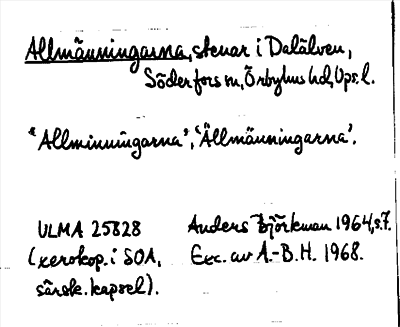 Allmänningarna, stenar i Dalälven,
Söderfors sn, Örbyhus hd, Ups. l.
"Allminningarna", "Ällmänningarna".
ULMA 25828
(xerokop. i SOA,
särsk. kapsel).
Anders Björkman 1964, s. 7.
Exc. av A.-B.H. 1968.